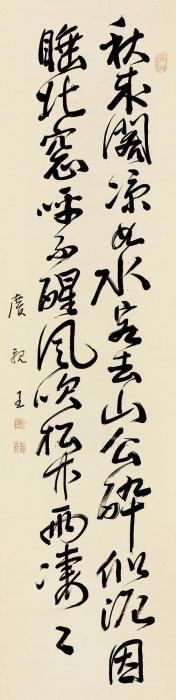 秋來閣凉如水客去山公醉似泥因
睡北窓呼不醒風吹松竹雨凄〻
慶親王